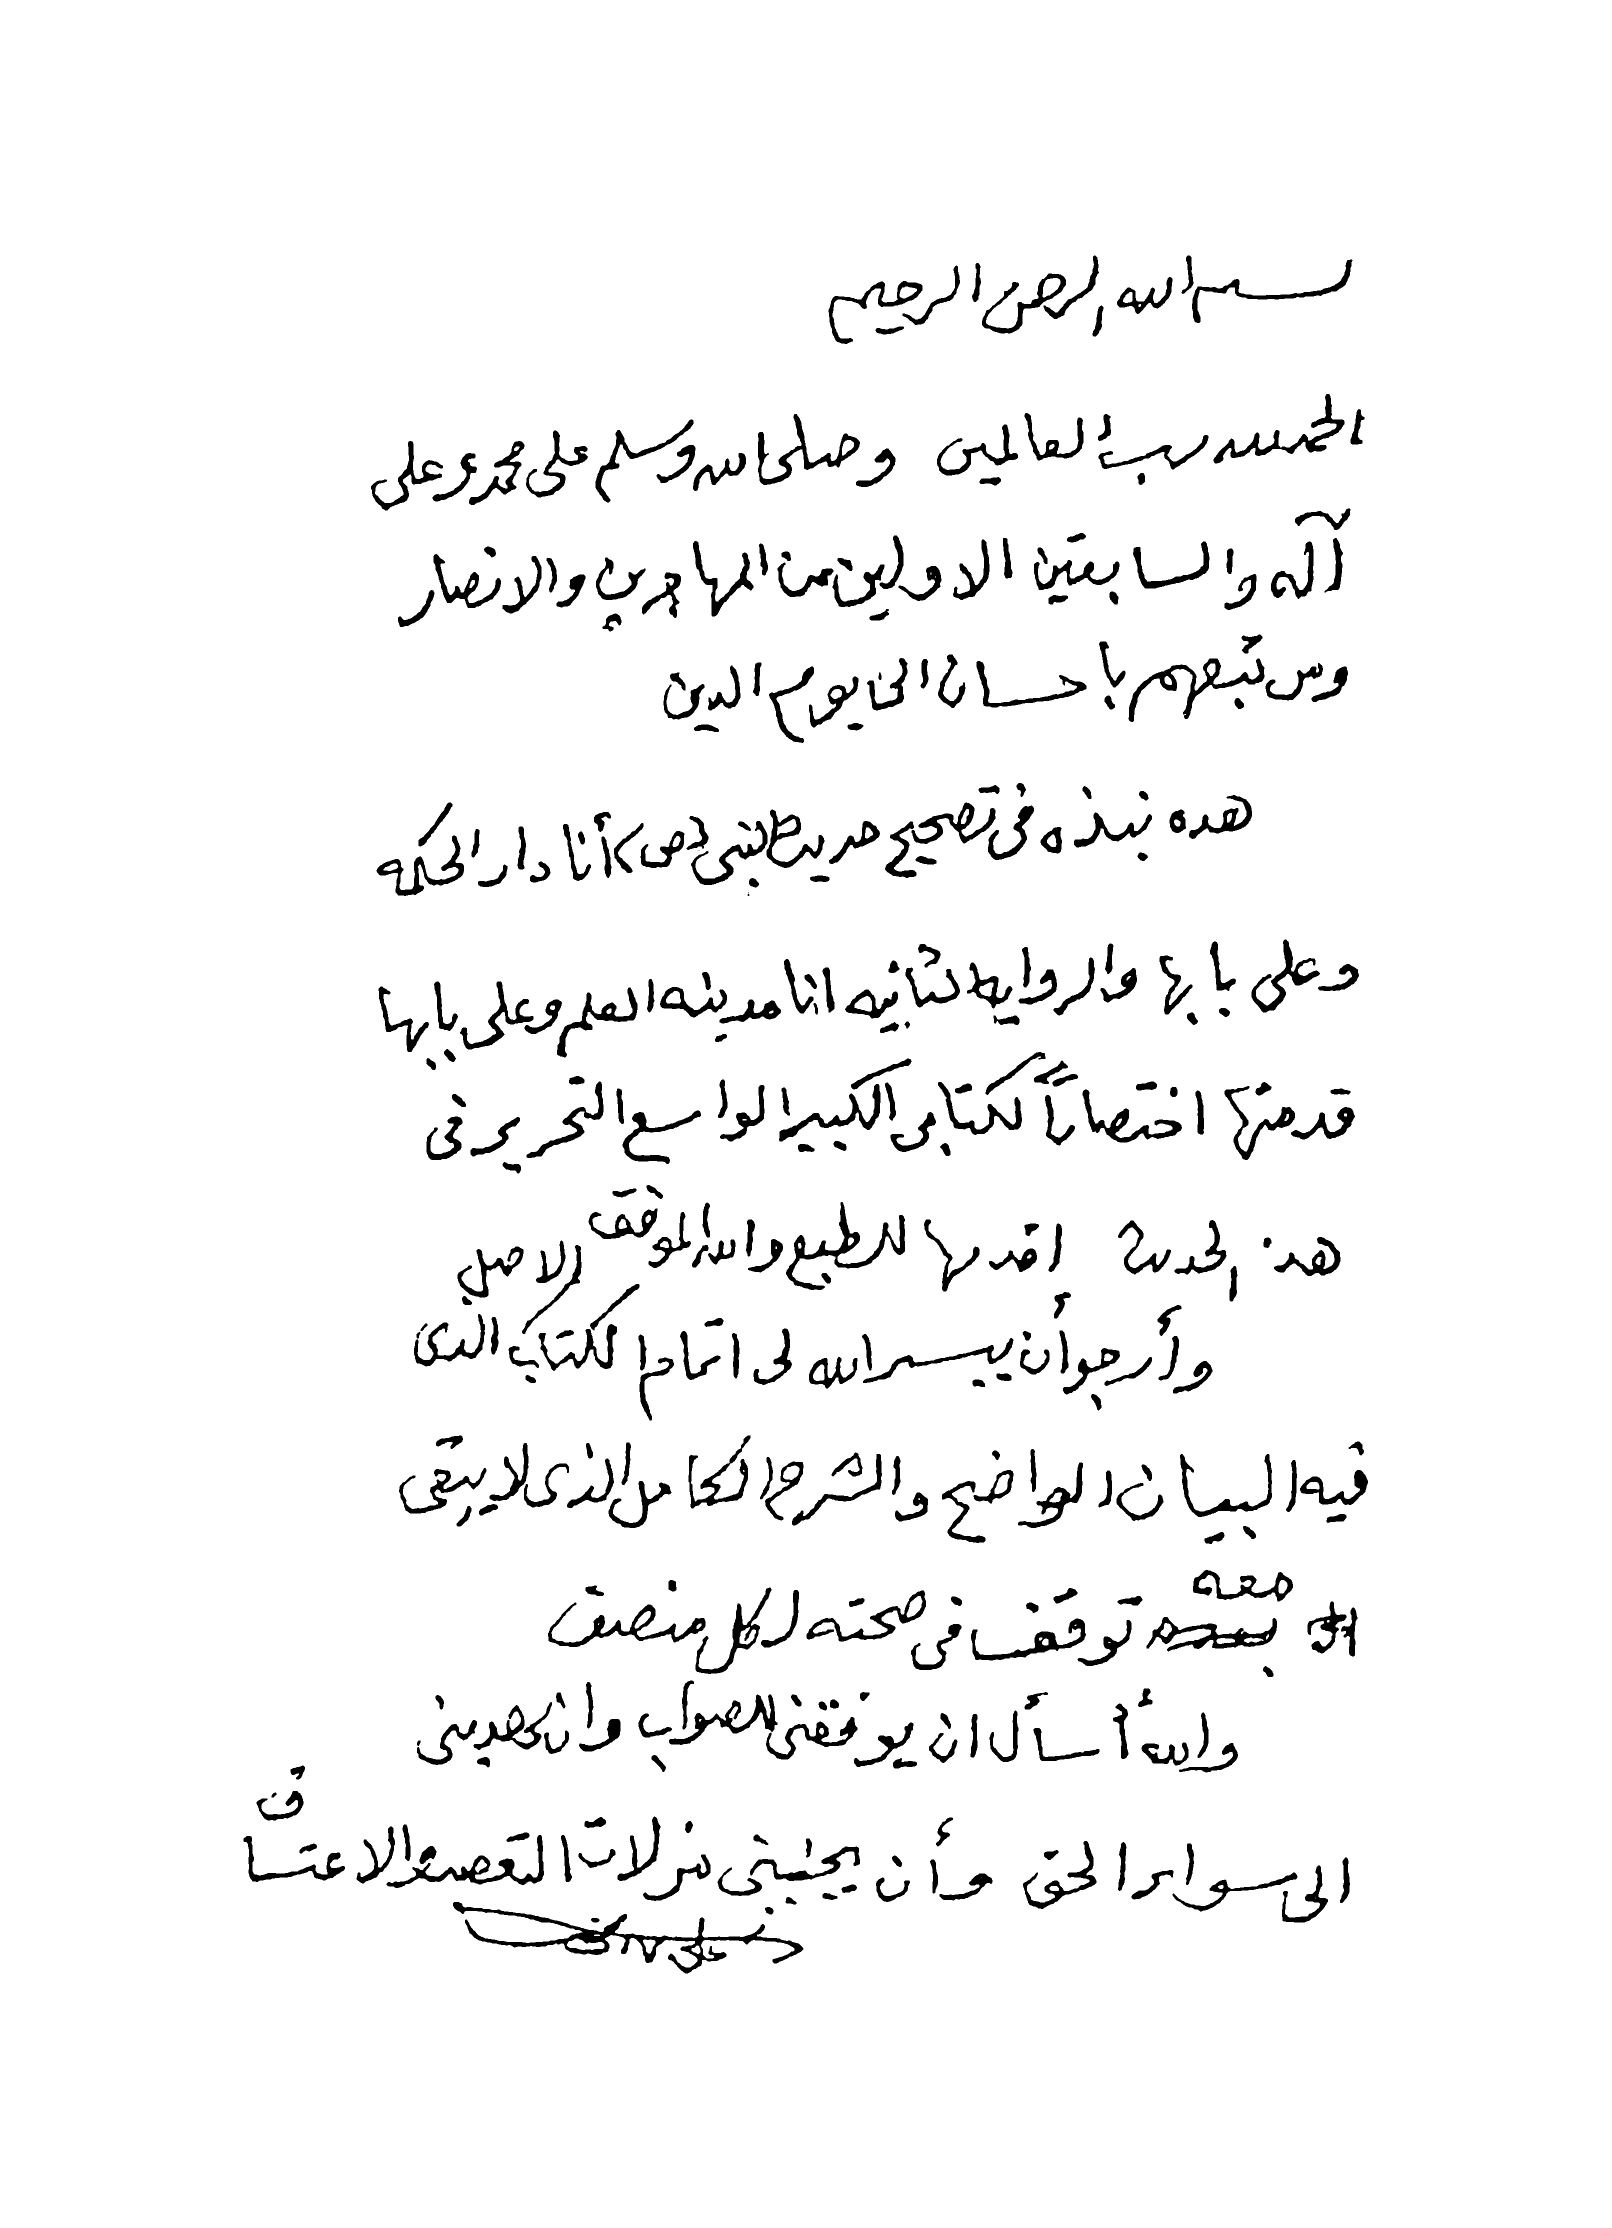 بسم الله الرحمن الرحيم
الحمد لله رب العالمين وصلى الله وسلم على محمد وعلى
آله والسابقين الاولين من المهاجرين والانصار
ومن تبعهم باحسان الى يوم الدين
هذه نبذه فى تصحيح حديث النبى (ص) أنا دار الحكمه
وعلى بابها والرواية الثانيه انا مدينه العلم وعلى بابها
قدمتها اختصاراً لكتابى الكبير الواسع التحرير فى
هذا الحديث اقدمها للطبع والله الموفق
وأرجو أن ييسر الله لى اتمام الكتاب الاصل الذى
فيه البيان الواضح والشرح الكامل الذى لا يبقى
معه توقف فى صحته لكل منصف
والله أسأل ان يوفقنى للصواب وان يهدينى
الى سواء الحق وأن يجنبنى مزلات التعصب والاعتساف